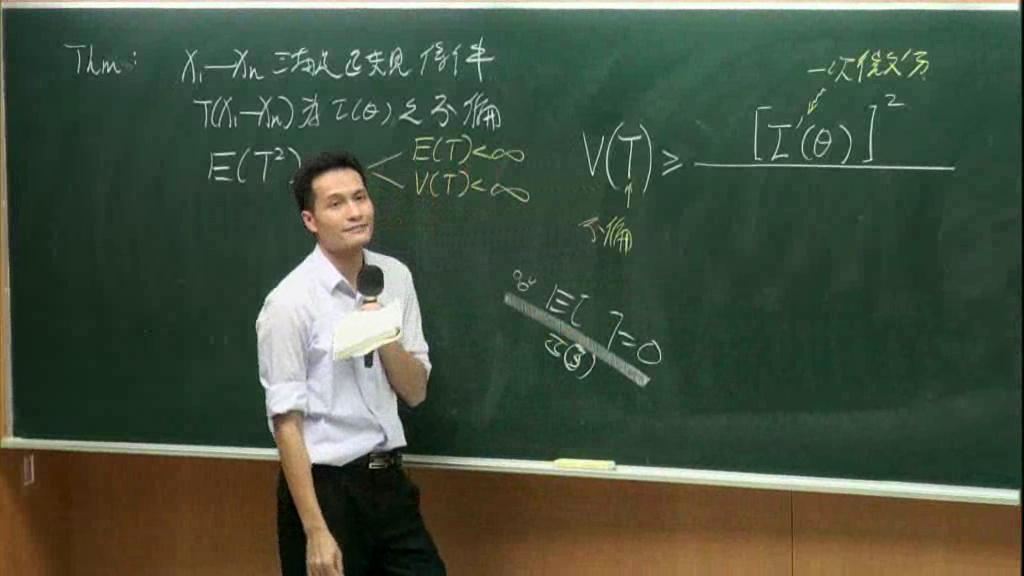 Thm: X₁—Xₙ 三滿足正規條件
T(X₁—Xₙ)為 τ(θ) 之不偏
E(T²)
E(T)<∞
V(T)<∞
一次微分
V(T) ≥ [τ'(θ)]²
不偏
E[ ]=0